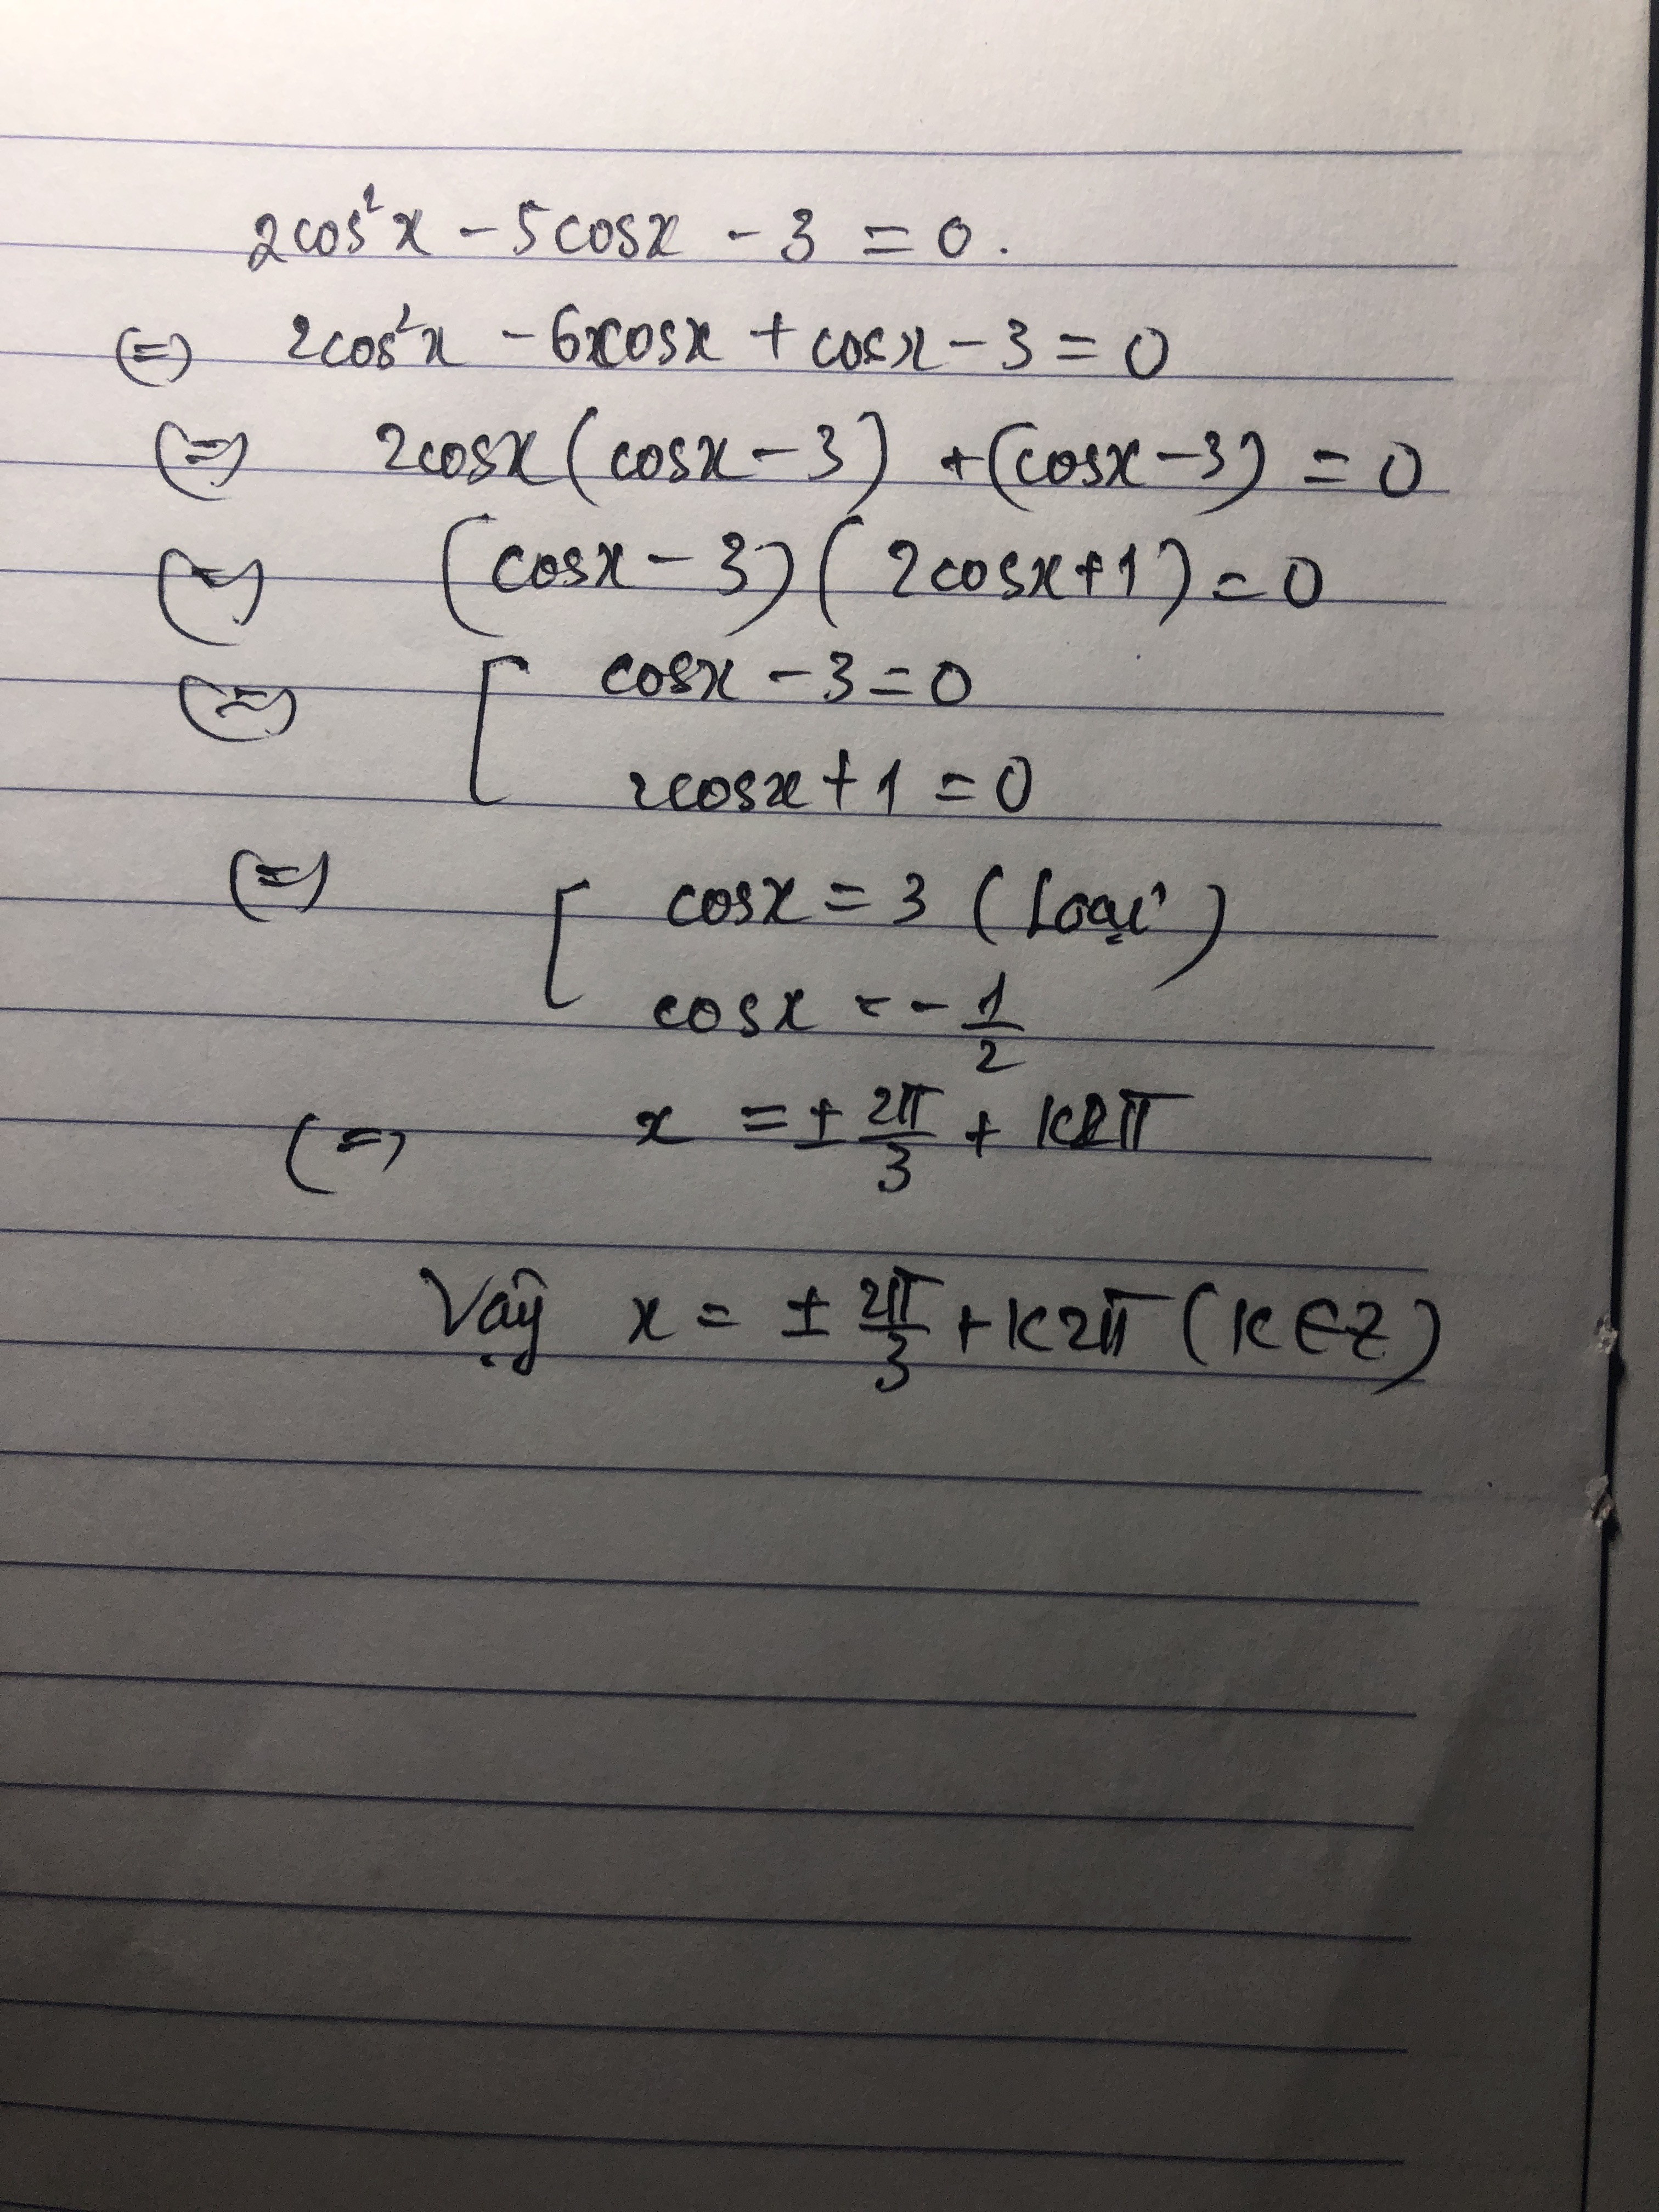 2cos²x - 5cosx - 3 = 0.
(=) 2cos²x - 6xcosx + cosx - 3 = 0
(=) 2cosx (cosx - 3) + (cosx - 3) = 0
(=) (cosx - 3)( 2cosx + 1) = 0
(=) [ cosx - 3 = 0
2cosx + 1 = 0
(=) [ cosx = 3 ( Loại )
cosx = - 1/2
(=) x = ± 2π/3 + k2π
Vậy x = ± 2π/3 + k2π ( k ∈ Z )